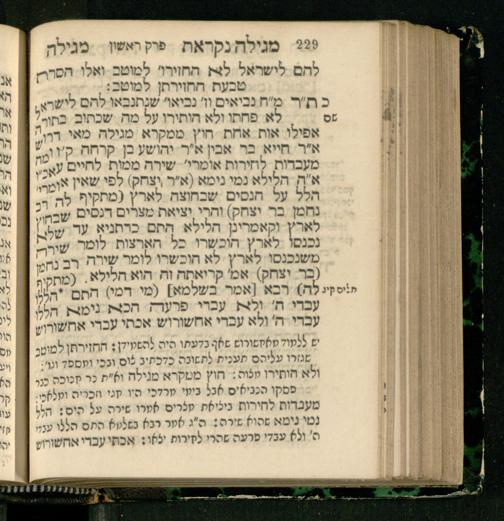 229 מגילה נקראת פרק ראשון מגילה
להם לישראל לא החזירו' למוטב ואלו הסרת
טבעת החזירתן למוטב:
כ ת״ר מ״ח נביאים וז' נביאו' שנתנבאו להם לישראל
שם לא פחתו ולא הותירו על מה שכתוב בתורה
אפילו אות אחת חוץ ממקרא מגילה מאי דרוש
א״ר חייא בר אבין א״ר יהושע בן קרחה ק״ו ומה
מעבדות לחירות אומרי' שירה ממות לחיים עאכ״ו
א״ה הלילא נמי נימא (א״ר יצחק) לפי שאין אומרי'
הלל על הנסים שבחוצה לארץ (מתקיף לה רב
נחמן בר יצחק) והרי יציאת מצרים דנסים שבחוץ
לארץ וקאמרינן הלילא התם כדתניא עד שלא
נכנסו לארץ הוכשרו כל הארצות לומר שירה
משנכנסו לארץ לא הוכשרו לומר שירה רב נחמן
(בר יצחק) אמ' קריאתה זה הוא הלילא. (מתקיף
תלים קיג לה) רבא [אמר בשלמא] (מי דמי) התם *הללו
עבדי ה' ולא עבדי פרעה הכא נימא הללו
עבדי ה' ולא עבדי אחשורוש אכתי עבדי אחשורוש
יש ללמוד מאחשורוש שאף בדעתו היה להשמידן: החזירתן למוטב
שגזרו עליהם תענית לתשובה כדכתיב צום ובכי ומספד וגו':
ולא הותירו עלוה: חוץ ממקרא מגילה וא״ת נר חנוכה כבר
פסקו הנביאים אבל בימי מרדכי היו חגי זכריה ומלאכי:
מעבדות לחירות ביציאת מצרים אמרו שירה על הים: הלל
נמי נימא שהוא שירה: ה״ג אמר רבא בשלמא התם הללו עבדי
ה' ולא עבדי פרעה שהרי לחירות יצאו: אכתי עבדי אחשורוש